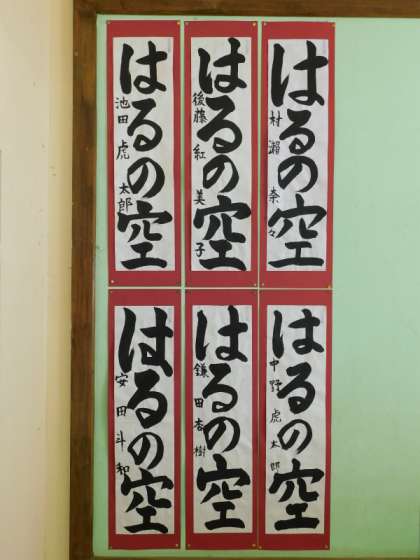 はるの空
村瀬奈々
はるの空
後藤紅美子
はるの空
池田虎太郎
はるの空
中野虎太郎
はるの空
鎌田杏樹
はるの空
安田斗和